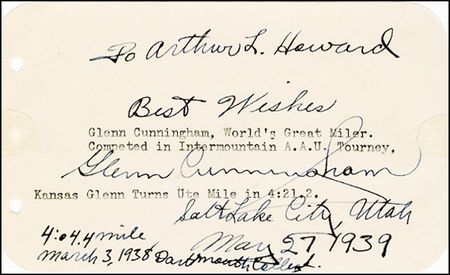 To Arthur L. Howard
Best Wishes
Glenn Cunningham, World's Great Miler.
Competed in Intermountain A.A.U. Tourney,
Glenn Cunningham
Kansas Glenn Turns Ute Mile in 4:21.2.
Salt Lake City, Utah
May 27 1939
4:04.4 mile
March 3, 1938 Dartmouth College.